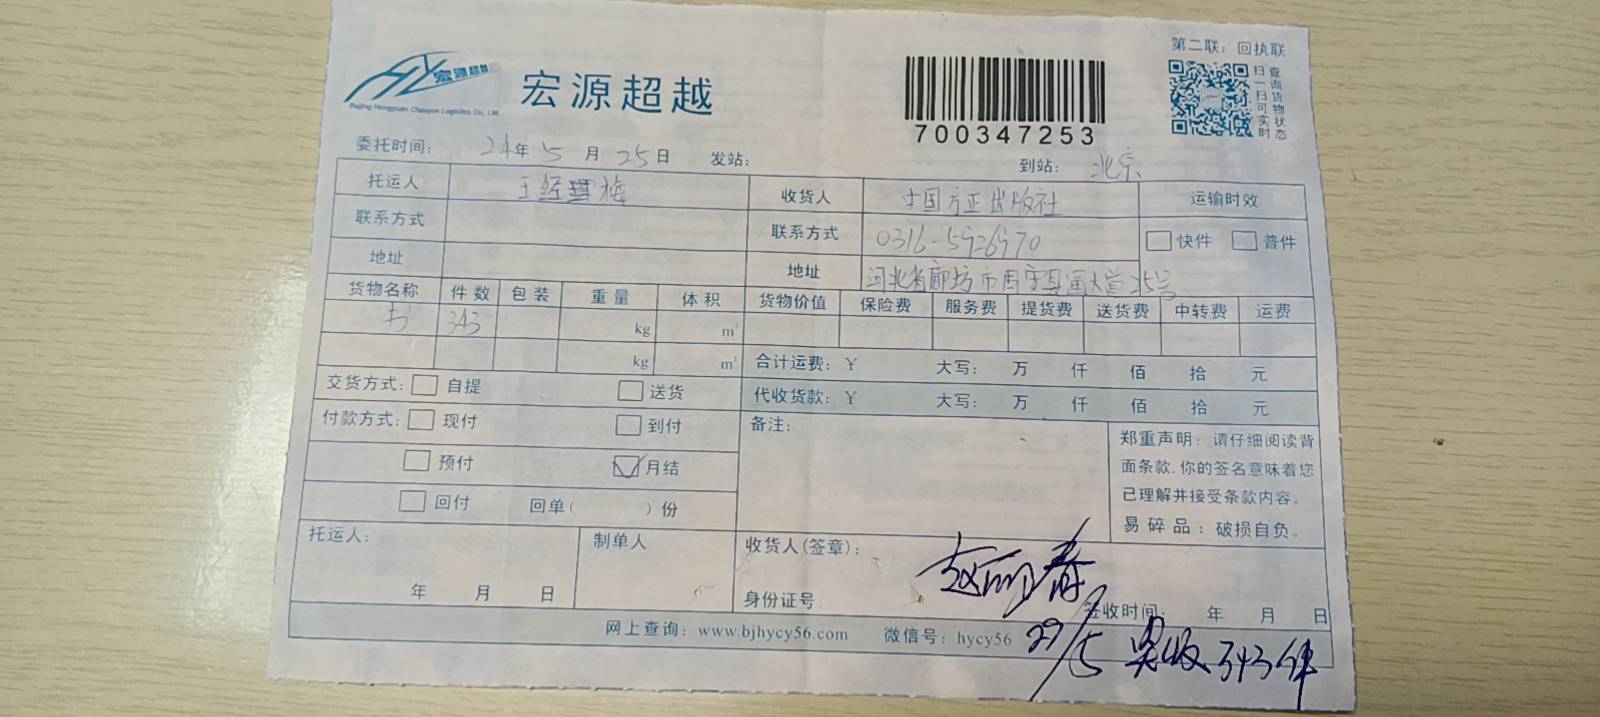 第二联：回执联
宏源超越
Beijing Hongyuan Chaoyue Logistics Co., Ltd.
宏源超越
700347253
扫一扫可实时
查询货物状态
委托时间： 24年 5 月 25日 发站： 到站： 北京
托运人 王经理梅 收货人 中国方正出版社 运输时效
联系方式 联系方式 0316-5926970 快件 普件
地址 地址 河北省廊坊市固安县通大道25号
货物名称 件数 包装 重量 体积 货物价值 保险费 服务费 提货费 送货费 中转费 运费
书 343 kg m³
kg m³ 合计运费：￥ 大写： 万 仟 佰 拾 元
交货方式： 自提 送货 代收货款：￥ 大写： 万 仟 佰 拾 元
付款方式： 现付 到付 备注：
预付 月结
回付 回单（ ）份
郑重声明：请仔细阅读背
面条款，你的签名意味着您
已理解并接受条款内容。
易碎品：破损自负。
托运人： 制单人 收货人(签章)： 赵丽春
年 月 日 身份证号 签收时间： 年 月 日
网上查询：www.bjhycy56.com 微信号：hycy56 27/5 实收343件